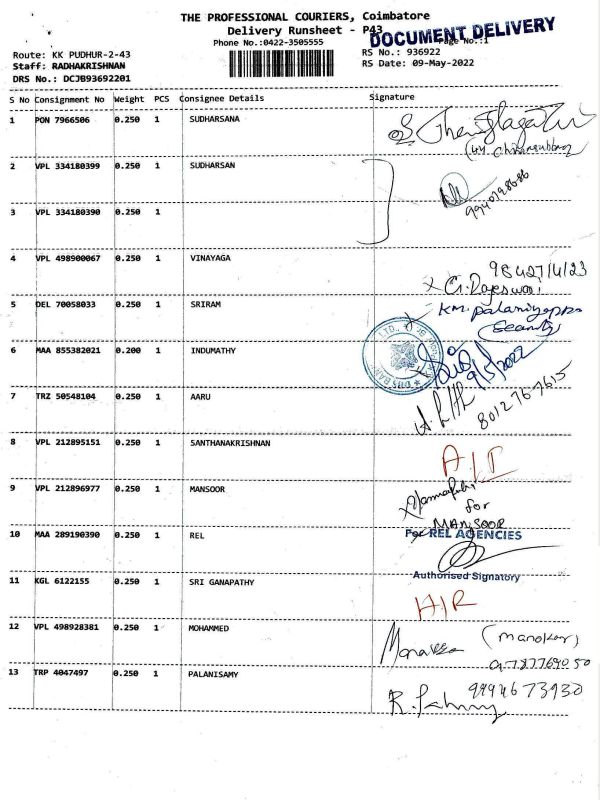 THE PROFESSIONAL COURIERS, Coimbatore
Delivery Runsheet - P43
DOCUMENT DELIVERY
Phone No.:0422-3505555
Page No.:1
Route: KK PUDHUR-2-43
RS No.: 936922
Staff: RADHAKRISHNAN
RS Date: 09-May-2022
DRS No.: DCJB93692201
S No Consignment No Weight PCS Consignee Details Signature
1 PON 7966506 0.250 1 SUDHARSANA
2 VPL 334180399 0.250 1 SUDHARSAN
9940798686
3 VPL 334180390 0.250 1
4 VPL 498900067 0.250 1 VINAYAGA
G. Rajeswari
5 DEL 70058033 0.250 1 SRIRAM
KM. Palaniyappa
(Security)
6 MAA 855382021 0.200 1 INDUMATHY
9/5/2022
7 TRZ 50548104 0.250 1 AARU
8012767615
8 VPL 212895151 0.250 1 SANTHANAKRISHNAN
9 VPL 212896977 0.250 1 MANSOOR
for
MANSOOR
10 MAA 289190390 0.250 1 REL
For REL AGENCIES
Authorised Signatory
11 KGL 6122155 0.250 1 SRI GANAPATHY
12 VPL 498928381 0.250 1 MOHAMMED
(Manokar)
13 TRP 4047497 0.250 1 PALANISAMY
9994673930